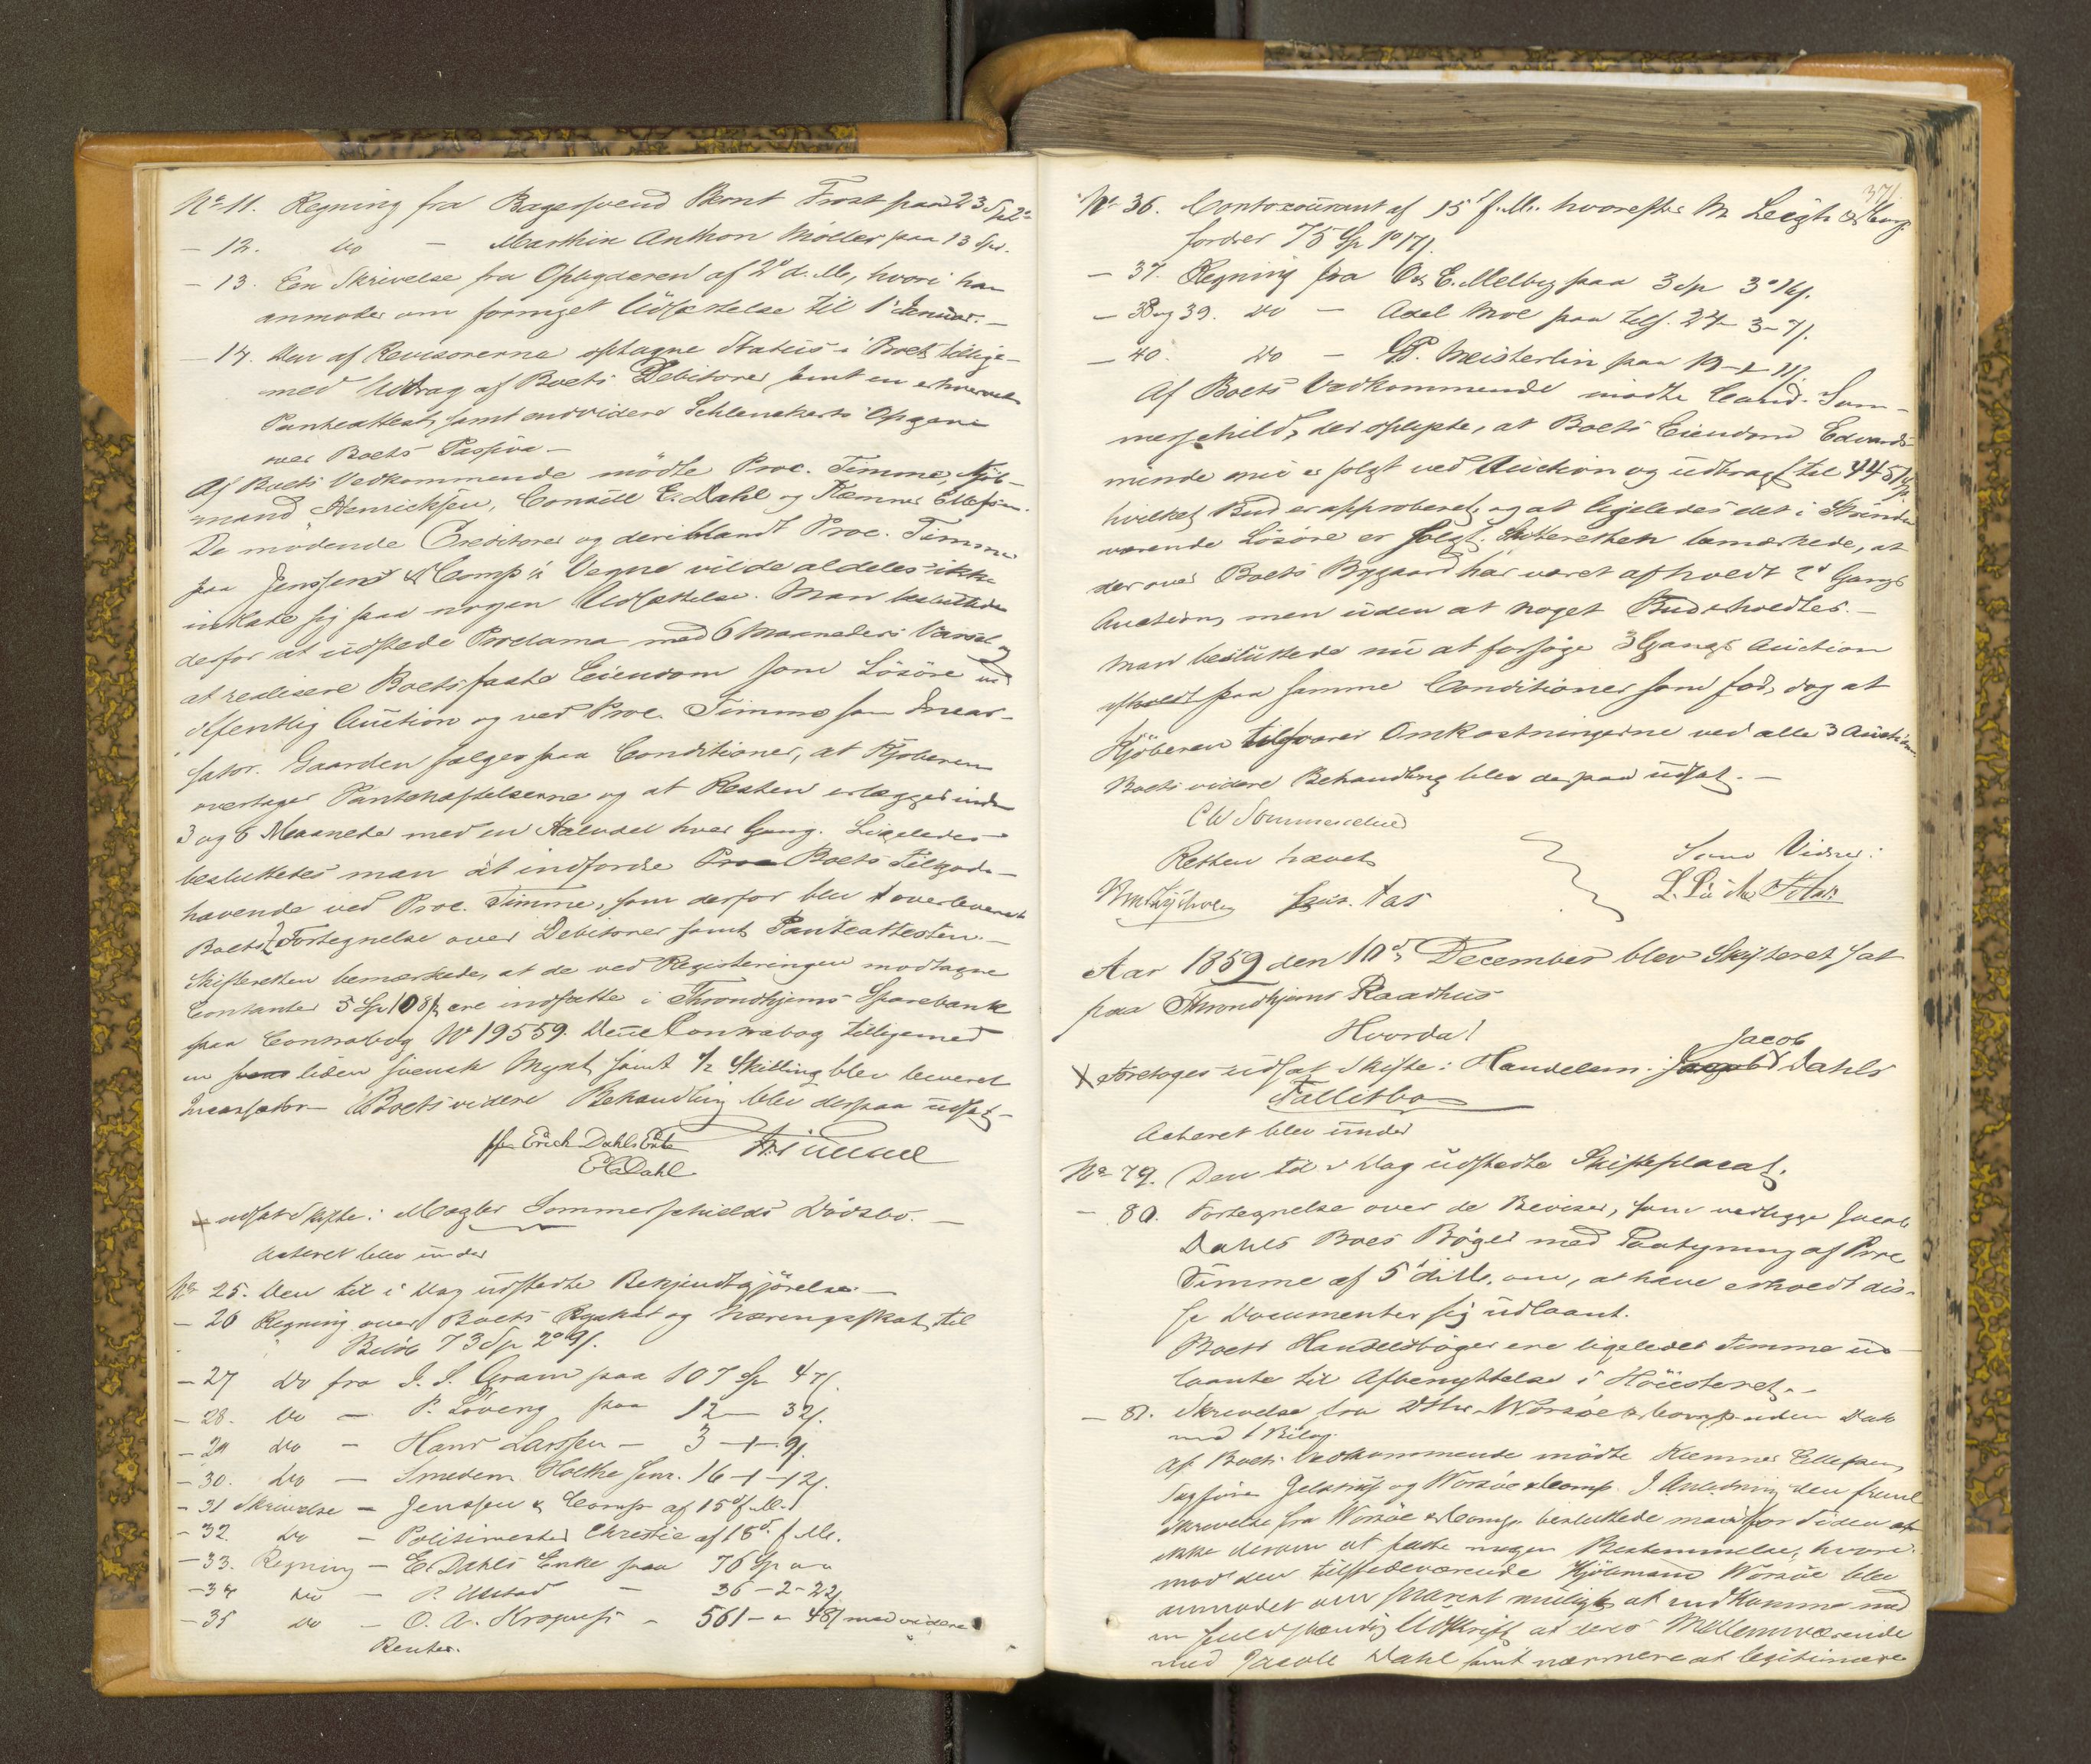 No 11. Regning fra Bagersvend Bernt Frost paa 23 Sp 2
- 12. do - Marthin Anthon Möller paa 13 Sp.
- 13. En Skrivelse fra Opbyderen af 2d d. M., hvori han
anmoder om fornyet Udsættelse til 1 Januar. -
- 14. Den af Revisorerne optagne Status i Boet tillige-
med Uddrag af Boets Debitorer samt en erhvervet
Panteattest, samt endvidere Schlenckerts Opgave
over Boets Passiva -
Af Boets Vedkommende mödte Proc. Timme, Kjöb-
mand Henricksen, Consul E. Dahl og Kæmner Ellefsen.
De mödende Creditorer og deriblandt Proc. Timme
paa Jenssens & Comp's Vegne vilde aldeles ikke
indlade sig paa nogen Udsættelse. Man besluttede
derfor at udstede Proclama med 6 Maaneders Varsel og
at realisere Boets faste Eiendom som Lösöre ved
offentlig Auction og ved Proc. Timme som Incas-
sator. Gaarden sælges paa Conditioner, at Kjöberen
overtager Pantehæftelserne og at Resten erlægges inden
3 og 6 Maaneder med en Halvdel hver Gang. Ligeledes
besluttedes man at indfordre Boets Tilgode-
havende ved Proc. Timme, som derfor blev overleveret
Boets Fortegnelse over Debitorer samt Panteattesten. -
Skifteretten bemærkede, at de ved Registeringen modtagne
Contanter 5 Sp 108 s, ere indsatte i Throndhjems Sparebank
paa Contrabog No 19559. Denne Contrabog tilligemed
en liden svensk Mynt samt 1/2 Skilling blev leveret
Incassator - Boets videre Behandling blev derpaa udsat -
pp Erich Dahls Enke
E A Dahl
Timme
x udsat Skifte: Mægler Sommerschields Dödsbo. -
Acteret blev under
No 25. Den til i Dag udstedte Bekjendtgjörelse. -
- 26 Regning over Boets Byskat og Næringsskat, til
Belöb 73 Sp 2 19 s.
- 27 do fra J. S. Gram paa 107 Sp 47 s.
- 28. do - P. Löveng paa 12 - 32 s.
- 29 do - Hans Larssen - 3 - 1 - 9 s.
- 30. do - Smedem. Holthe sen. 16 - 1 - 12 s.
- 31 Skrivelse - Jenssen & Comp af 15d f. M.
- 32. do - Politimester Christie af 18d f. M.
- 33. Regning - E. Dahls Enke paa 76 Sp " "
- 34 do - P. Ulstad - 36 - 2 - 22 s.
- 35 do - O. A. Krogness - 561 - " 48 s med videre
Renter.
371.
No 36. Contocourant af 15 f. M. hvorefter M Leigh & Comp
fordrer 75 Sp 1 17 s.
- 37. Regning fra C. E. Melbye paa 3 Sp 3 16 s.
- 38 og 39. do - Axel Moe paa tils. 24 - 3 - 7 s.
- 40. do - P. Meisterlin paa 19 - 1 11 s.
Af Boets Vedkommende mödte Cand. Som-
merschild, der oplyste, at Boets Eiendom Edvards-
minde nu er solgt ved Auction og udbragt til 4451 Sp.
hvilket Bud er approberet, og at ligeledes det i Strinden
værende Lösöre er solgt. Skifteretten bemærkede, at
der over Boets Bygaard har været afholdt 2d Gangs
Auction, men uden at noget Bud erholdtes. -
Man besluttede nu at forsöge 3 Gangs Auction
afholdt paa samme Conditioner som för, dog at
Kjöberen tilsvarer Omkostningerne ved alle 3 Auctioner
Boets videre Behandling blev derpaa udsat. -
C W Sommerschild
Retten hævet
Som Vidner:
Aar 1859 den 10d December blev Skifteret sat
paa Throndhjems Raadhus
Hvorda!
x Foretoges udsat Skifte: Handelsm. Jacob Dahls
Fallitbo
Acteret blev under
No 79. Den til i Dag udstedte Skifteplacat.
- 80. Fortegnelse over de Beviser, som vedligge Jacob
Dahls Boes Böger med Paategning af Proc
Timme af 5 d. M. om, at have erholdt dis-
se Documenter sig udlaant.
Boets Handelsböger ere ligeledes Timme ud-
laante til Afbenyttelse i Höiesteret. -
- 81. Skrivelse fra DHrr. Worsöe & Comp uden Dato
med 1 Bilag.
Af Boets Vedkommende mödte Kæmner Ellefsen,
Sagförer Jelstrup og Worsöe & Comp. I Anledning den
Skrivelse fra Worsöe & Comp. besluttede man for Tiden
ikke derom at fatte nogen Bestemmelse, hvori-
mod den tilstedeværende Kjöbmand Worsöe blev
anmodet om snarest muligt at indkomme med
en fuldstændig Udskrift af deres Mellemværende
med Jacob Dahl samt nærmere at legitimere